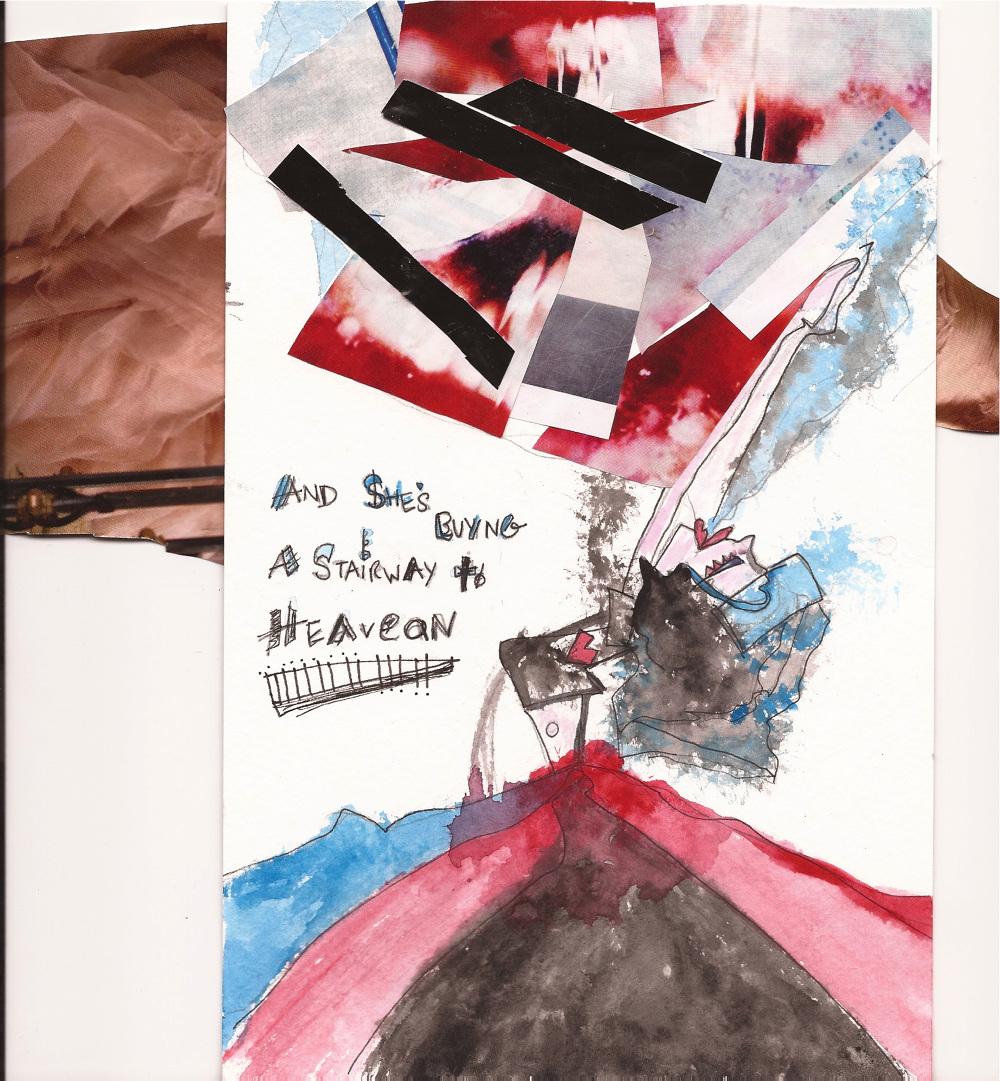 AND $HE'S
BUYNG
A STAIRWAY to
HEAvEaN